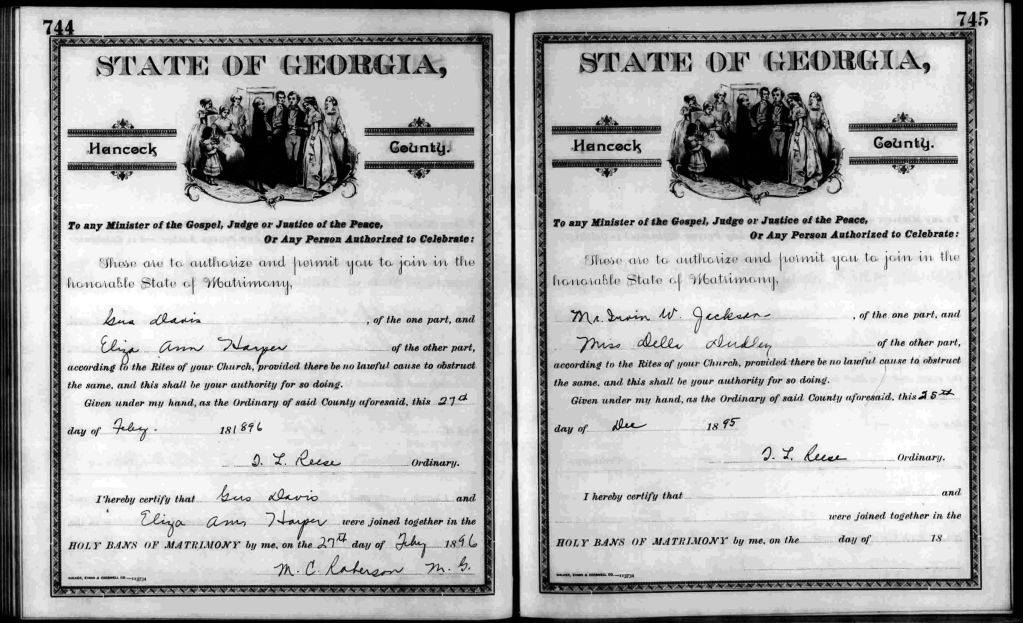 744
STATE OF GEORGIA,
Hancock County.
To any Minister of the Gospel, Judge or Justice of the Peace,
Or Any Person Authorized to Celebrate:
These are to authorize and permit you to join in the
honorable State of Matrimony,
Gus Davis, of the one part, and
Eliza Ann Harper of the other part,
according to the Rites of your Church, provided there be no lawful cause to obstruct
the same, and this shall be your authority for so doing.
Given under my hand, as the Ordinary of said County aforesaid, this 27th
day of Feby. 181896
T. L. Reese Ordinary.
I hereby certify that Gus Davis and
Eliza Ann Harper were joined together in the
HOLY BANS OF MATRIMONY by me, on the 27th day of Feby 1896
M. C. Roberson M. G.
WALKER, EVANS & COGSWELL CO.
745
STATE OF GEORGIA,
Hancock County.
To any Minister of the Gospel, Judge or Justice of the Peace,
Or Any Person Authorized to Celebrate:
These are to authorize and permit you to join in the
honorable State of Matrimony,
Mr. Irvin W. Jackson, of the one part, and
Miss Della Dudley of the other part,
according to the Rites of your Church, provided there be no lawful cause to obstruct
the same, and this shall be your authority for so doing.
Given under my hand, as the Ordinary of said County aforesaid, this 25th
day of Dec 1895
T. L. Reese Ordinary.
I hereby certify that and
were joined together in the
HOLY BANS OF MATRIMONY by me, on the day of 18
WALKER, EVANS & COGSWELL CO.